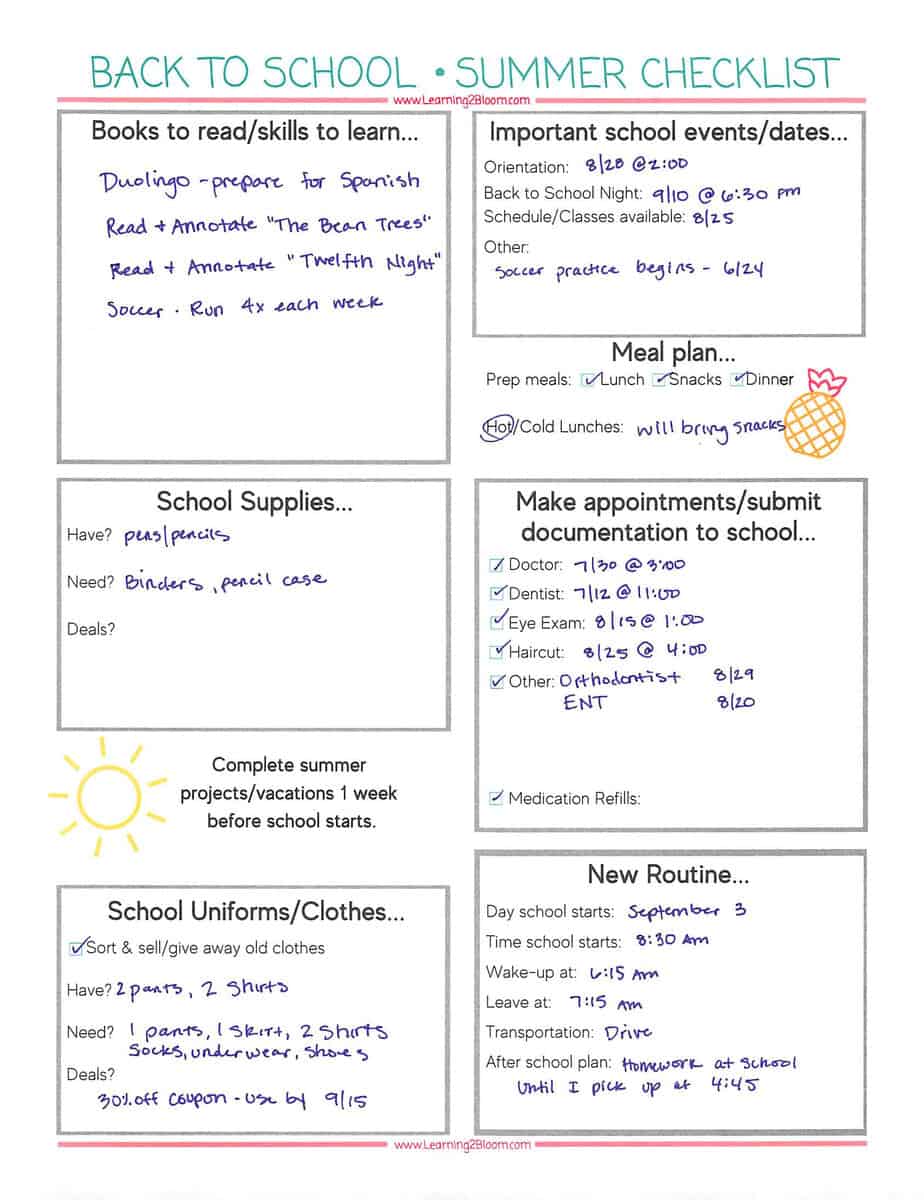 BACK TO SCHOOL • SUMMER CHECKLIST
www.Learning2Bloom.com
Books to read/skills to learn...
Duolingo - prepare for Spanish
Read + Annotate "The Bean Trees"
Read + Annotate "Twelfth Night"
Soccer - Run 4x each week
Important school events/dates...
Orientation: 8/28 @ 2:00
Back to School Night: 9/10 @ 6:30 pm
Schedule/Classes available: 8/25
Other:
Soccer practice begins - 6/24
Meal plan...
Prep meals: Lunch Snacks Dinner
Hot/Cold Lunches: will bring snacks
School Supplies...
Have? pens/pencils
Need? Binders, pencil case
Deals?
Make appointments/submit
documentation to school...
Doctor: 7/30 @ 3:00
Dentist: 7/12 @ 11:00
Eye Exam: 8/15 @ 1:00
Haircut: 8/25 @ 4:00
Other: Orthodontist 8/29
ENT 8/20
Medication Refills:
Complete summer
projects/vacations 1 week
before school starts.
School Uniforms/Clothes...
Sort & sell/give away old clothes
Have? 2 pants, 2 Shirts
Need? 1 pants, 1 skirt, 2 Shirts
Socks, underwear, shoes
Deals?
30% off coupon - use by 9/15
New Routine...
Day school starts: September 3
Time school starts: 8:30 Am
Wake-up at: 6:15 Am
Leave at: 7:15 Am
Transportation: Drive
After school plan: Homework at School
Until I pick up at 4:45
www.Learning2Bloom.com